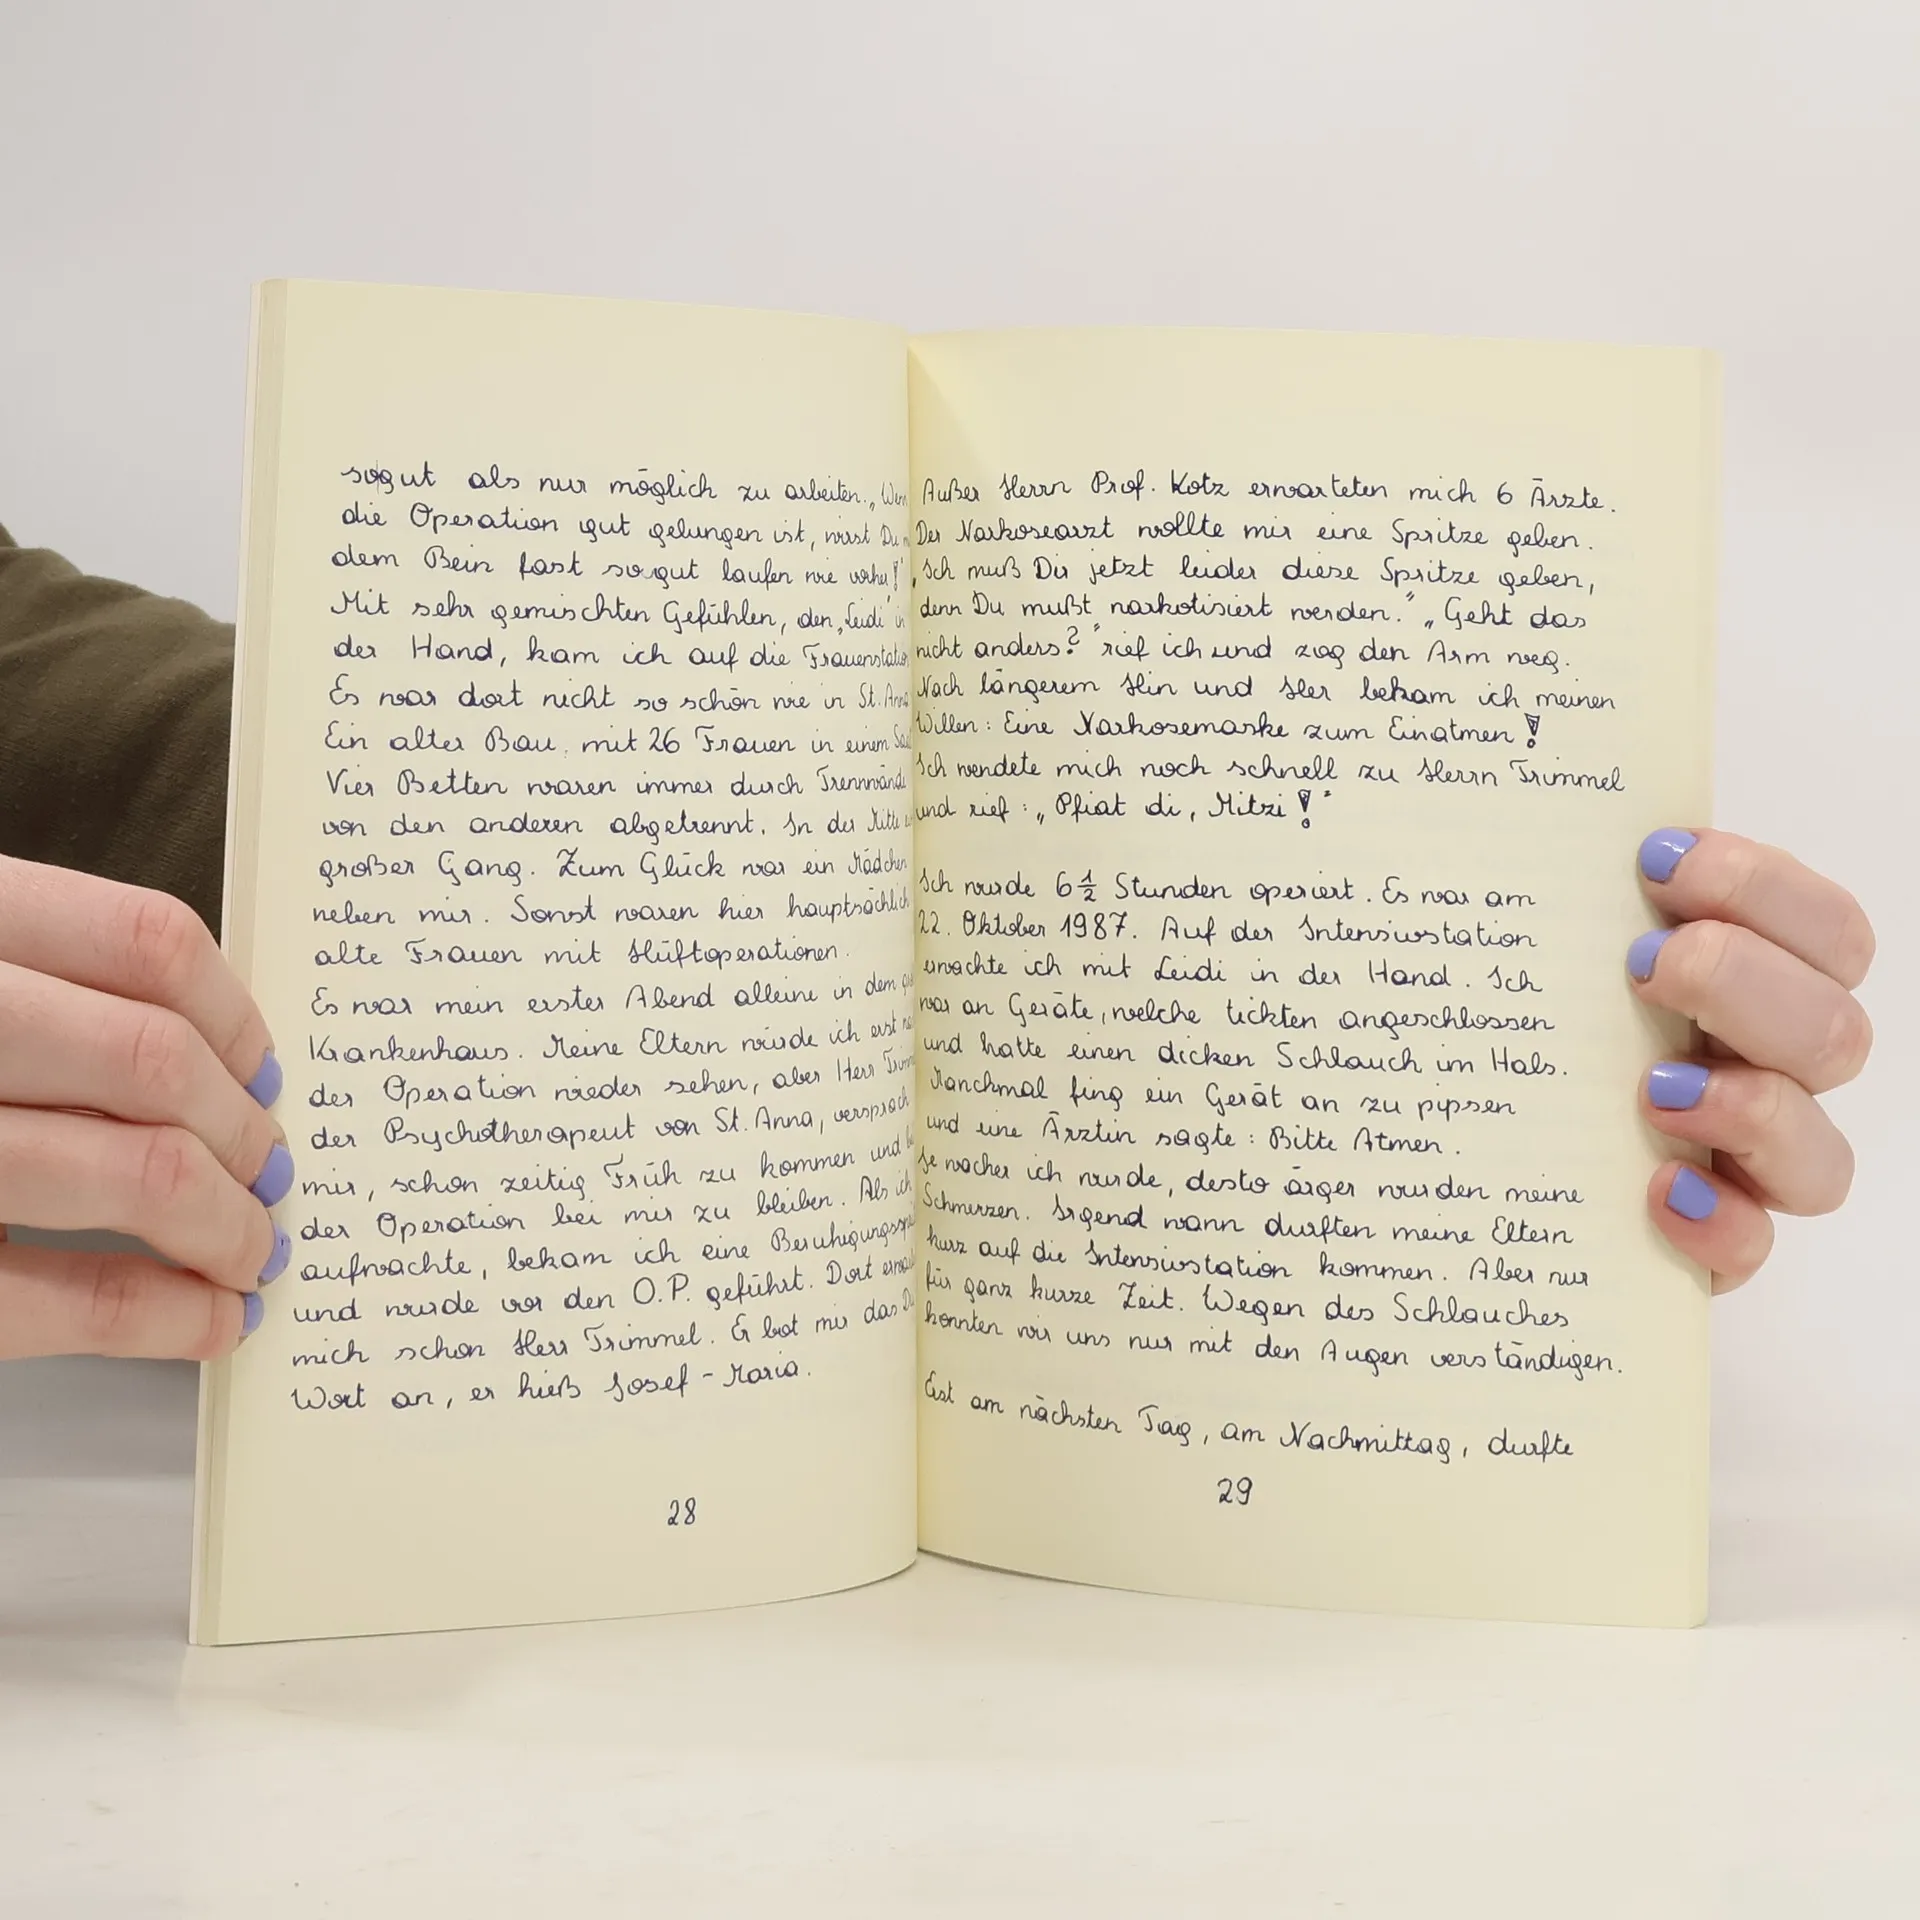 sogut als nur möglich zu arbeiten. „Wenn
die Operation gut gelungen ist, wirst Du
dem Bein fast sogut laufen wie vorher!"
Mit sehr gemischten Gefühlen, den „Leidi" in
der Hand, kam ich auf die Frauenstation
Es war dort nicht so schön wie in St. Anna
Ein alter Bau, mit 26 Frauen in einem Saal
Vier Betten waren immer durch Trennwände
von den anderen abgetrennt. In der Mitte
großer Gang. Zum Glück war ein Mädchen
neben mir. Sonst waren hier hauptsächlich
alte Frauen mit Hüftoperationen.
Es war mein erster Abend alleine in dem
Krankenhaus. Meine Eltern würde ich erst
der Operation wieder sehen, aber Herr
der Psychotherapeut von St. Anna, versprach
mir, schon zeitig Früh zu kommen und
der Operation bei mir zu bleiben. Als ich
aufwachte, bekam ich eine
und wurde vor den O.P. geführt. Dort
mich schon Herr Trimmel. Er bot mir das Du
Wort an, er hieß Josef-Maria.
28
Außer Herrn Prof. Kotz erwarteten mich 6 Ärzte.
Der Narkosearzt wollte mir eine Spritze geben.
„Ich muß Dir jetzt leider diese Spritze geben,
denn Du mußt narkotisiert werden." „Geht das
nicht anders?" rief ich und zog den Arm weg.
Nach längerem Hin und Her bekam ich meinen
Willen: Eine Narkosemaske zum Einatmen!
Ich wendete mich noch schnell zu Herrn Trimmel
und rief: „Pfiat di, Mitzi!"
Ich wurde 6 1/2 Stunden operiert. Es war am
22. Oktober 1987. Auf der Intensivstation
erwachte ich mit Leidi in der Hand. Ich
war an Geräte, welche tickten angeschlossen
und hatte einen dicken Schlauch im Hals.
Manchmal fing ein Gerät an zu pipsen
und eine Ärztin sagte: Bitte Atmen.
Je wacher ich wurde, desto ärger wurden meine
Schmerzen. Irgend wann durften meine Eltern
kurz auf die Intensivstation kommen. Aber nur
für ganz kurze Zeit. Wegen des Schlauches
konnten wir uns nur mit den Augen verständigen.
Erst am nächsten Tag, am Nachmittag, durfte
29